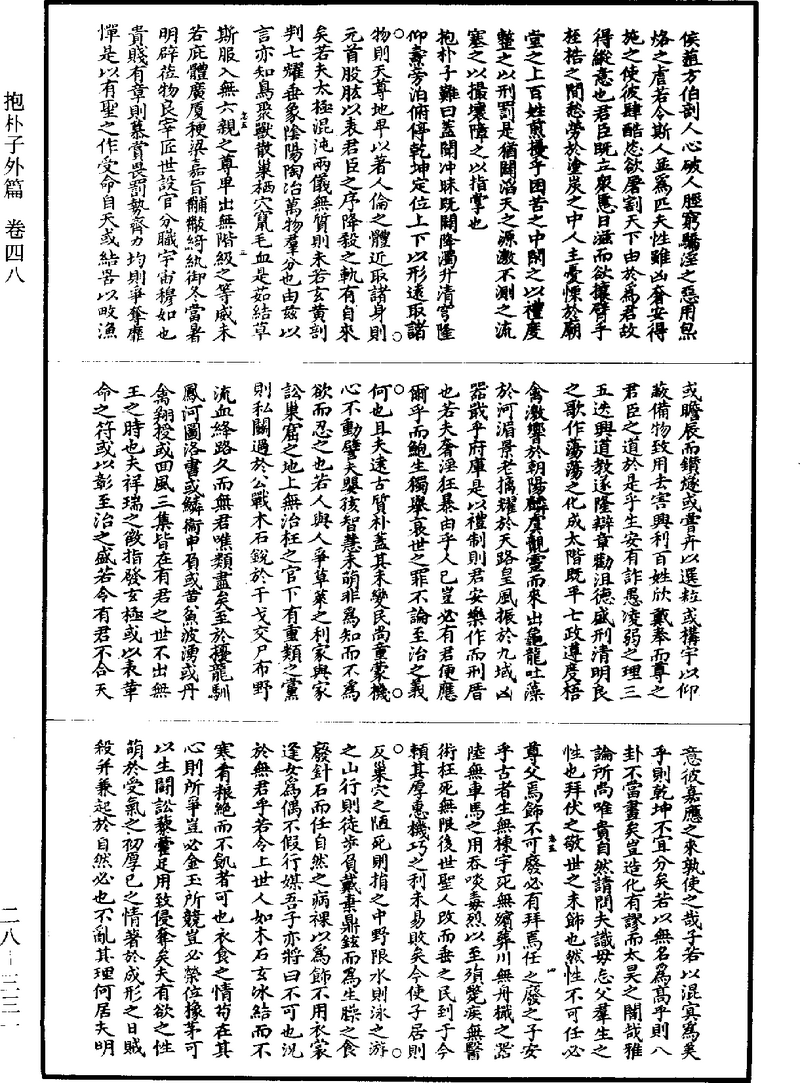 侯葅方伯剖人心破人脛窮驕淫之惡用炰
烙之虐若令斯人並為匹夫性雖凶奢安得
施之使彼肆酷恣欲屠割天下由於為君故
得縱意也君臣既立衆慝日滋而欲攘臂乎
桎梏之間愁勞於塗炭之中人主憂慄於廟
堂之上百姓煎擾乎困苦之中閑之以禮度
整之以刑罰是猶闢滔天之源激不測之流
塞之以撮壤障之以指掌也
抱朴子難曰蓋聞沖昧既闢降濁升清穹隆
仰燾旁泊俯停乾坤定位上下以形遠取諸
物則天尊地卑以著人倫之體近取諸身則
元首股肱以表君臣之序降殺之軌有自來
矣若夫太極混沌兩儀無質則未若玄黄剖
判七耀垂象陰陽陶冶萬物羣分也由兹以
言亦知鳥聚獸散巢栖穴竄毛血是茹結草
斯服入無六親之尊卑出無階級之等威未
若庇體廣厦粳梁嘉旨黼黻綺紈御冬當暑
明辟莅物良宰匠世設官分職宇宙穆如也
貴賤有章則慕賞畏罰勢齊力均則爭奪靡
憚是以有聖之作受命自天或結罟以畋漁
或瞻辰而鑽燧或嘗卉以選粒或構宇以仰
蔽備物致用去害興利百姓欣戴奉而尊之
君臣之道於是乎生安有詐愚凌弱之理三
五迭興道教遂隆辯章勸沮德盛刑清明良
之歌作蕩蕩之化成太階既平七政遵度梧
禽激響於朝陽麟虞覿靈而來出龜龍吐藻
於河湄景老摛耀於天路皇風振於九域凶
器戢乎府庫是以禮制則君安樂作而刑厝
也若夫奢淫狂暴由乎人已豈必有君便應
爾乎而鮑生獨舉衰世之罪不論至治之義
何也且夫遠古質朴蓋其未變民尚童蒙機
心不動譬夫嬰孩智慧未萌非為知而不為
欲而忍之也若人與人爭草萊之利家與家
訟巢窟之地上無治枉之官下有重類之黨
則私鬭過於公戰木石銳於干戈交尸布野
流血絳路久而無君噍類盡矣至於擾龍馴
鳳河圖洛書或麟銜甲負或黄魚波湧或丹
禽翔授或回風三集皆在有君之世不出無
王之時也夫祥瑞之徵指發玄極或以表革
命之符或以彰至治之盛若令有君不合天
意彼嘉應之來孰使之哉子若以混冥為美
乎則乾坤不宜分矣若以無名為高乎則八
卦不當畫矣豈造化有謬而太昊之闇哉雅
論所尚唯貴自然請問夫識母忘父羣生之
性也拜伏之敬世之末飾也然性不可任必
尊父焉飾不可廢必有拜焉任之廢之子安
乎古者生無棟宇死無殯葬川無舟檝之器
陸無車馬之用吞啖毒烈以至殞斃疾無醫
術枉死無限後世聖人改而垂之民到于今
賴其厚惠機巧之利未易敗矣今使子居則
反巢穴之陋死則捐之中野限水則泳之游
之山行則徒步負戴棄鼎鉉而為生臊之食
廢針石而任自然之病裸以為飾不用衣裳
逢女為偶不假行媒吾子亦將曰不可也況
於無君乎若令上世人如木石玄冰結而不
寒肴粮絶而不飢者可也衣食之情苟在其
心則所爭豈必金玉所競豈必榮位橡芧可
以生鬭訟藜藿足用致侵奪矣夫有欲之性
萌於受氣之初厚己之情著於成形之日賊
殺并兼起於自然必也不亂其理何居夫明
抱朴子外篇　卷四八
二八－三三一